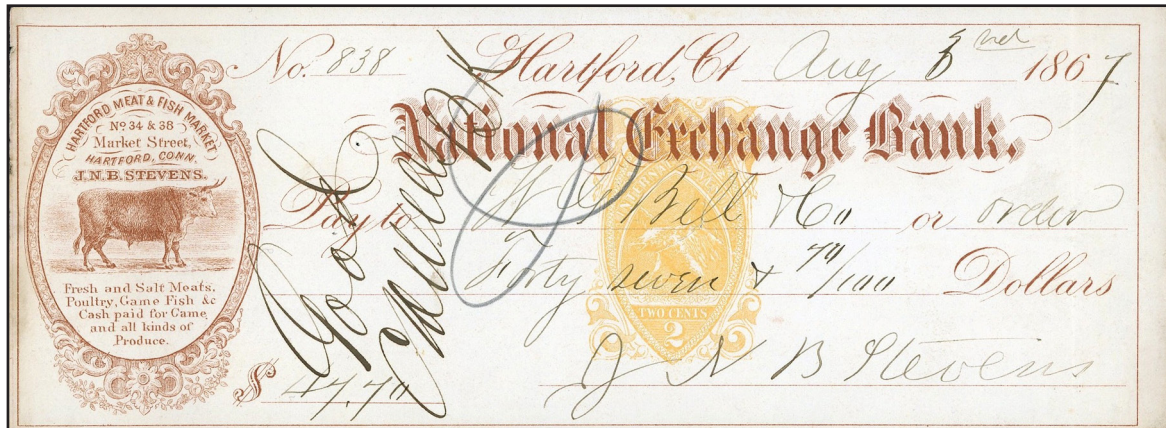 HARTFORD MEAT & FISH MARKET
No 34 & 38
Market Street,
HARTFORD, CONN.
J.N.B. STEVENS.
Fresh and Salt Meats.
Poultry, Game Fish &c
Cash paid for Game,
and all kinds of
Produce.
No. 838 Hartford, Ct Aug 2nd 1867
National Exchange Bank.
Pay to Bell & Co or order
Forty seven & 70/100 Dollars
TWO CENTS
2
$ 47.70
J N B Stevens
Good